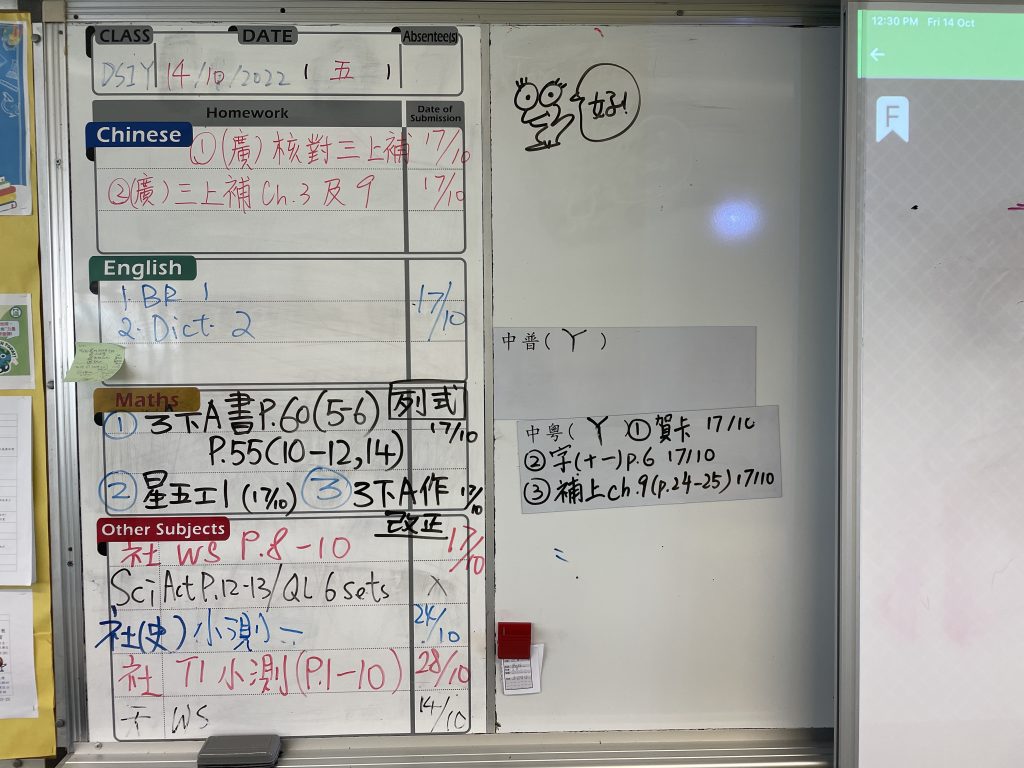 CLASS DATE Absentee(s)
DS1Y 14/10/2022 (五)
Homework Date of Submission
Chinese
①(廣)核對三上補 17/10
②(廣)三上補 Ch.3 及 9 17/10
English
1. BR 1 17/10
2. Dict. 2
Maths
① 3下A書P.60(5-6) 列式 17/10
P.55(10-12,14)
② 星五工1 (17/10) ③ 3下A作 17/10
改正
Other Subjects
社 WS P.8-10 17/10
Sci Act P.12-13/QL 6 sets
社(史)小測二 24/10
社 T1 小測(P.1-10) 28/10
WS 14/10
好!
中普(丫)
中粵(丫)①賀卡 17/10
②字(十一)p.6 17/10
③補上ch.9(p.24-25)17/10
12:30 PM Fri 14 Oct
F